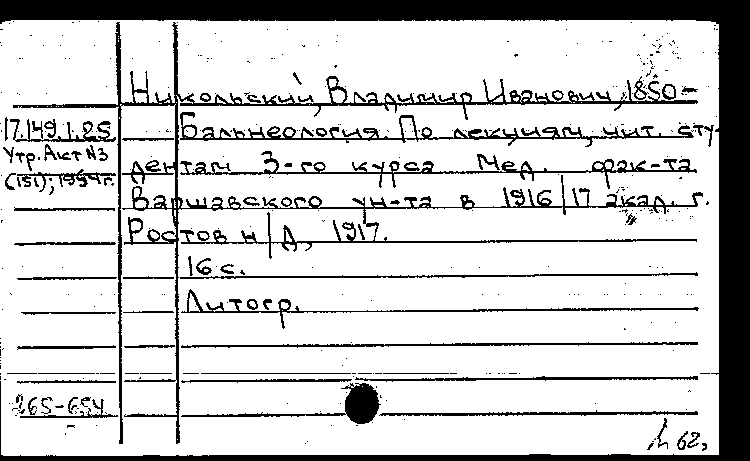 Никольский, Владимир Иванович, 1850-
17.149.1.25
Бальнеология. По лекциям, чит. сту-
Утр. Акт N3
(151); 1994г.
дентам 3-го курса Мед. фак-та
Варшавского ун-та в 1916/17 акад. г.
Ростов н/Д, 1917.
16 с.
Литогр.
265-654
62,